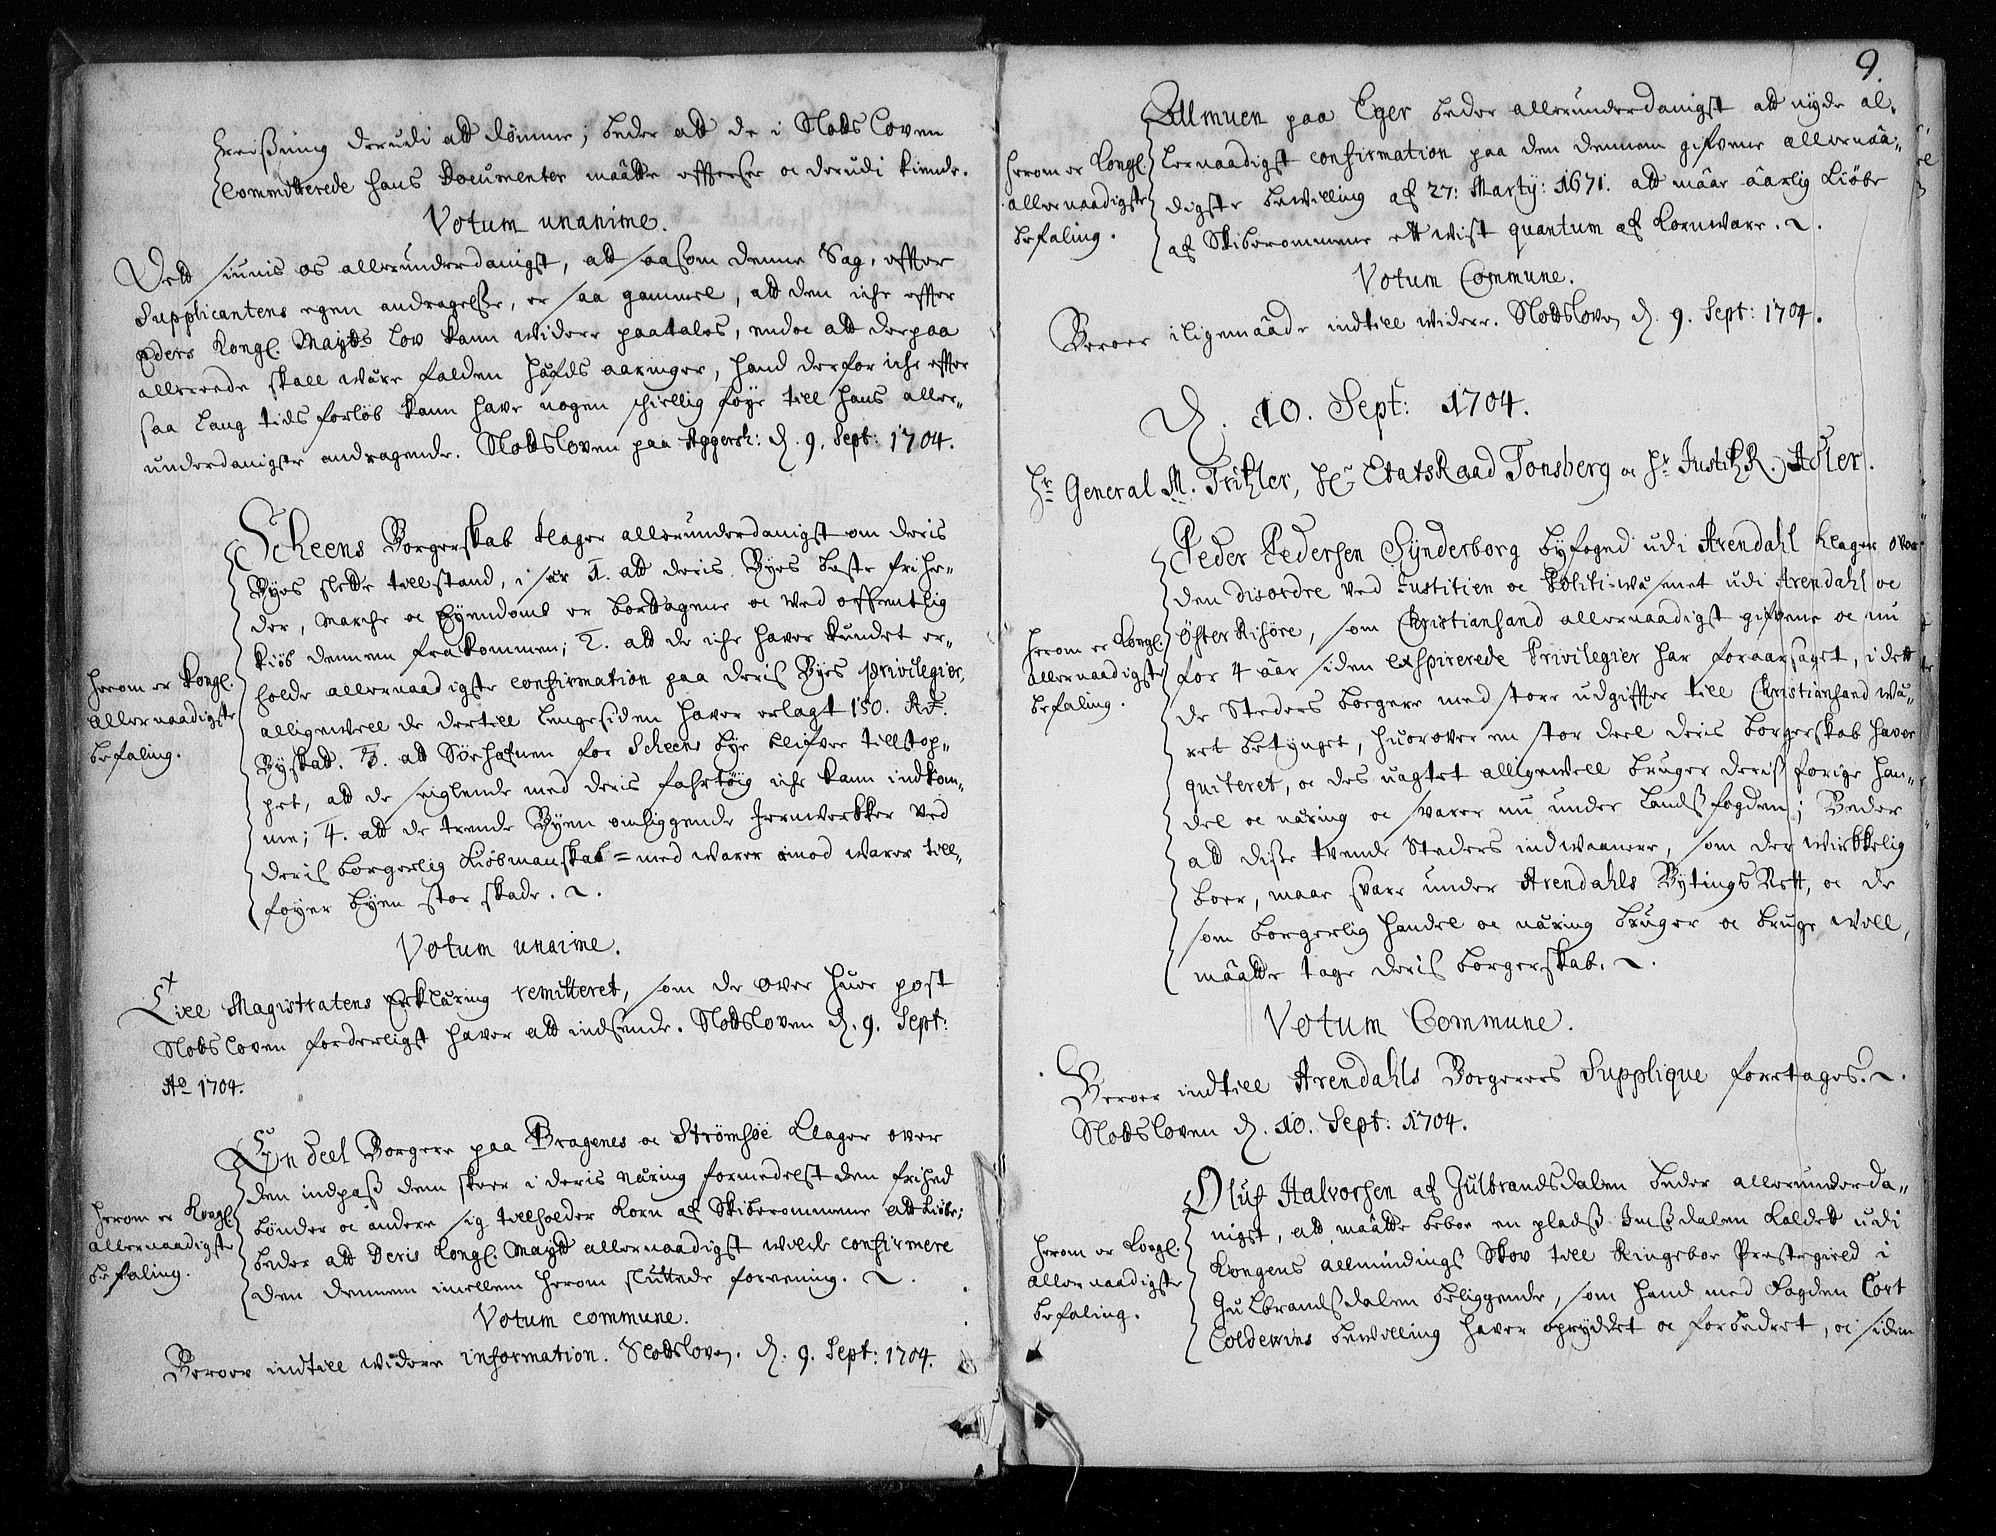 hreißning derudi att dømme; beder att de i Slottsloven
Committerede hans Documenter maatte effterse oc derudi kiende.
Votum unanime.
Dett siunis os allerunderdanigst, att saasom denne Sag, effter
Supplicantens egen andragelße, er saa gammel, att den iche effter
Eders Kongl. Maytts Lov kann widere paatales, endoc att derpaa
allerrede skall være falden hæfds aaringer, hand derfor iche effter
saa lang tids forløb kann have nogen schiellig føye till hans aller-
underdanigste andragende. Slottsloven paa Aggersh: d. 9. Sept: 1704.
Scheens Borgerskab klager allerunderdanigst om deris
Byes slette tillstand, i sær 1. att deris Byes beste frihe-
der, Marche oc Eyendomb er borttagene oc ved offentlig
kiøb dennem frakommen; 2. att de iche haver kundet er-
holde allernaadigste confirmation paa deris Byes privilegier,
alligevell de dertill lengesiden haver erlagt 150. Rd.
Byskatt. 3. att Søehafnen for Scheens bye blifver tillstop-
pet, att de seiglende med deris fahrtøig iche kann indkom-
me; 4. att de trende Byen omliggende Jernverkker ved
deris borgerlig Kiøbmanskab = med varer imod varer till-
føyer byen stor skade.
herom er Kongl.
allernaadigste
befaling.
Votum unaime.
Till Magistratens Erklæring remitteret, som de over huer post
Slottsloven forderligst haver att indsende. Slottsloven d. 9. Sept:
Ao 1704.
En deel Borgere paa Bragenes oc Strømsøe klager over
den indpaß dem skeer i deris næring formedelst den frihed
bønder oc andere sig tillholder korn af Skiberommene att kiøbe;
beder att Deris Kongl. Maytt allernaadigst wilde confirmere
den dennem imellem herom sluttede forrening.
herom er Kongl.
allernaadigste
befaling.
Votum commune.
Beroer indtill widere information. Slottsloven. d. 9. Sept: 1704.
9.
Allmuen paa Eger beder allerunderdanigst att nyde al-
lernaadigst confirmation paa den dennem gifvene allernaa-
digste bewilling af 27: Martij: 1671. att maae aarlig kiøbe
af Skiberommene ett wist quantum af kornware.
herom er Kongl.
allernaadigste
befaling.
Votum Commune.
Beroer iligemaade indtill widere. Slottsloven d. 9. Sept: 1704.
D. 10. Sept: 1704.
Hr General M. Tritzler, Hr EtatsRaad Tonsberg oc Hr JustitzR. Adler.
Peder Pedersen Synderborg byfoged udi Arendahl klager over
den disordre ved Justitien oc Politi-wæsenet udi Arendahl oc
Øster Risøre, som Christiansand allernaadigst gifvene oc nu
for 4 aar siden exspirerede Privilegier har foraarsaget, i dett
de Steders borgere med store udgiffter till Christiansand wæ-
ret betynget, huorover en stor deel deris borgerskab haver
quiteret, oc des uagtet alligewell bruger deris forige han-
del oc næring oc svarer nu under Landßfogden; Beder
att diße tvende Steders indwaanere, som der wirkkelig
boer, maae svare under Arendahls Bytings Rett, oc de
som borgerlig handel oc næring bruger oc bruge will,
maatte tage deris borgerskab.
herom er Kongl.
allernaadigste
befaling.
Votum Commune.
Beroer indtill Arendahls Borgeres Supplique foretages.
Slottsloven d. 10. Sept: 1704.
Oluf Halvorsen af Gulbrandsdalen beder allerunderda-
nigst, att maatte beboe en pladß Imßdalen kaldet udi
Kongens allmindings Skov till Ringeboe Prestegield i
Gulbrandßdalen beliggende, som hand med Fogden Cort
Coldewins bewilling haver opryddet oc forbedret, oc siden
herom er Kongl.
allernaadigste
befaling.